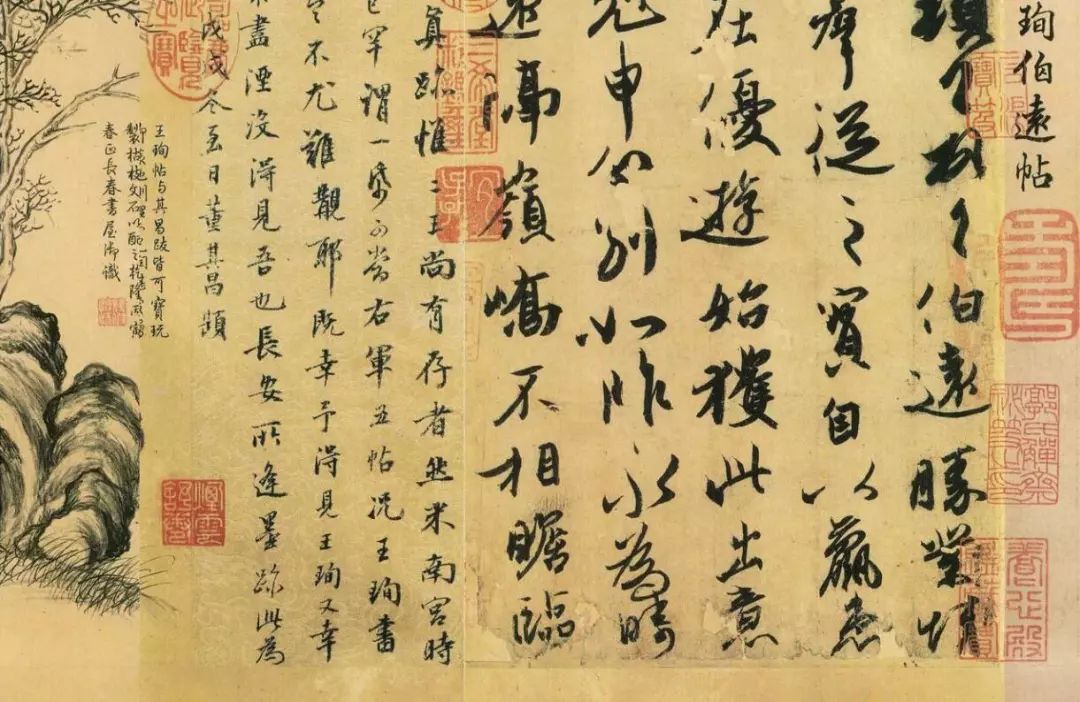 珣伯遠帖
頓首頓首伯遠勝業情
群從之寶自以羸患
在優遊始獲此出意
剋申分別如昨永為疇
遠隔嶺嶠不相瞻臨
真跡惟二王尚有存者然米南宮時
已罕謂一帋可當右軍五帖況王珣書
不尤難覯耶既幸予得見王珣又幸
不盡湮沒得見吾也長安所逢墨跡此為
戊戌冬至日董其昌題
王珣帖与其昌跋皆可寶玩
乾隆丙寅
春正長春書屋御識